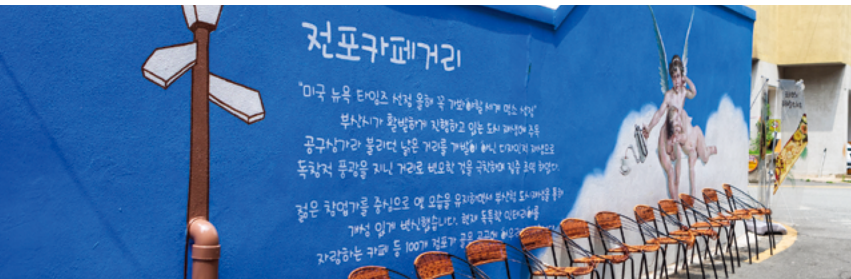 전포카페거리
"미국 뉴욕 타임즈 선정 올해 꼭 가봐야할 세계 명소 선정"
부산시가 활발하게 진행하고 있는 도시 재생에 주목
공구상가라 불리던 낡은 거리를 개발이 아닌 디자인적 재생으로
독창적 풍광을 지닌 거리로 변모한 것을 극찬하며 집중 조명 하였다.
젊은 창업가를 중심으로 옛 모습을 유지하면서 부산형 도시재생을 통해
개성 있게 변신했습니다. 현재 독특한 인테리어를
자랑하는 카페 등 100개 점포가